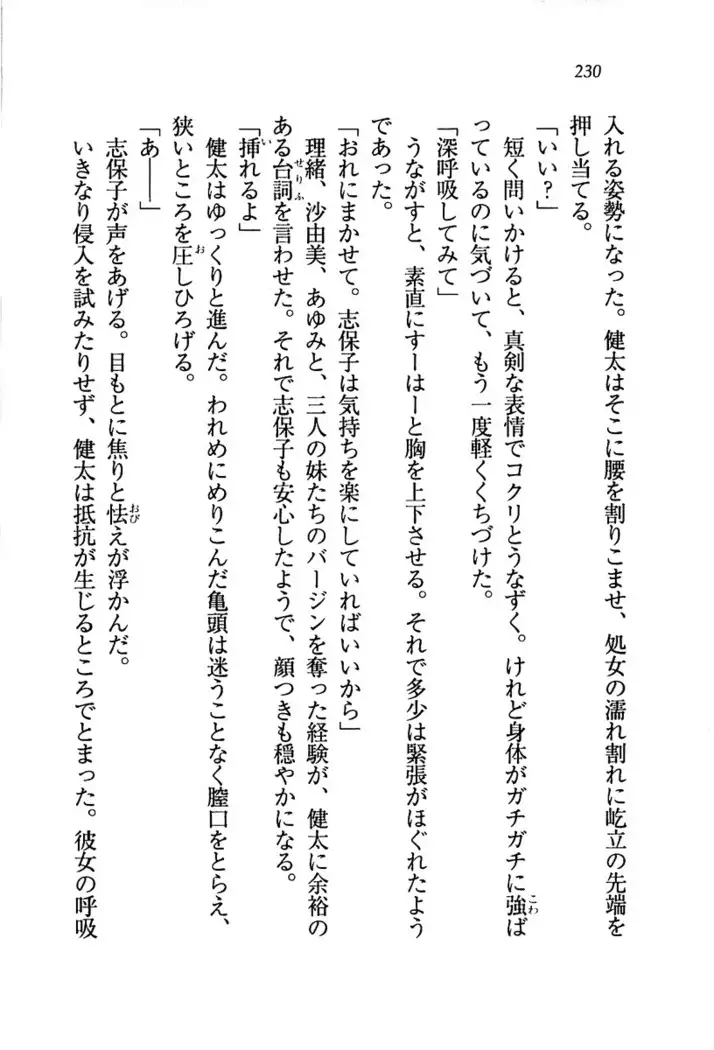 230
入れる姿勢になった。健太はそこに腰を割りこませ、処女の濡れ割れに屹立の先端を
押し当てる。
「いい？」
短く問いかけると、真剣な表情でコクリとうなずく。けれど身体がガチガチに強ば
っているのに気づいて、もう一度軽くくちづけた。
「深呼吸してみて」
うながすと、素直にすーはーと胸を上下させる。それで多少は緊張がほぐれたよう
であった。
「おれにまかせて。志保子は気持ちを楽にしていればいいから」
理緒、沙由美、あゆみと、三人の妹たちのバージンを奪った経験が、健太に余裕の
ある台詞を言わせた。それで志保子も安心したようで、顔つきも穏やかになる。
「挿れるよ」
健太はゆっくりと進んだ。われめにめりこんだ亀頭は迷うことなく膣口をとらえ、
狭いところを圧しひろげる。
「あ――」
志保子が声をあげる。目もとに焦りと怯えが浮かんだ。
いきなり侵入を試みたりせず、健太は抵抗が生じるところでとまった。彼女の呼吸